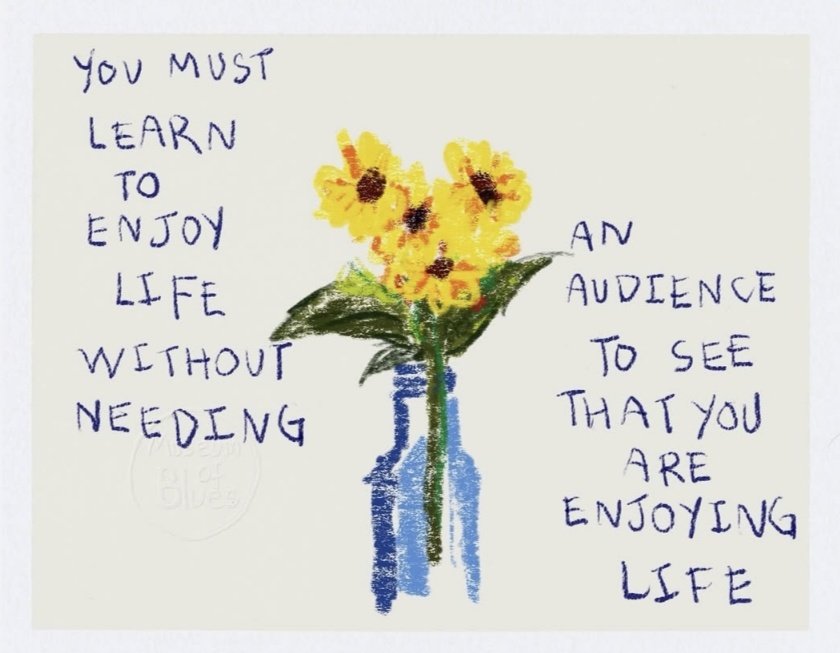 YOU MUST
LEARN
TO
ENJOY
LIFE
WITHOUT
NEEDING
AN
AUDIENCE
TO SEE
THAT YOU
ARE
ENJOYING
LIFE
Museum
of
Blues